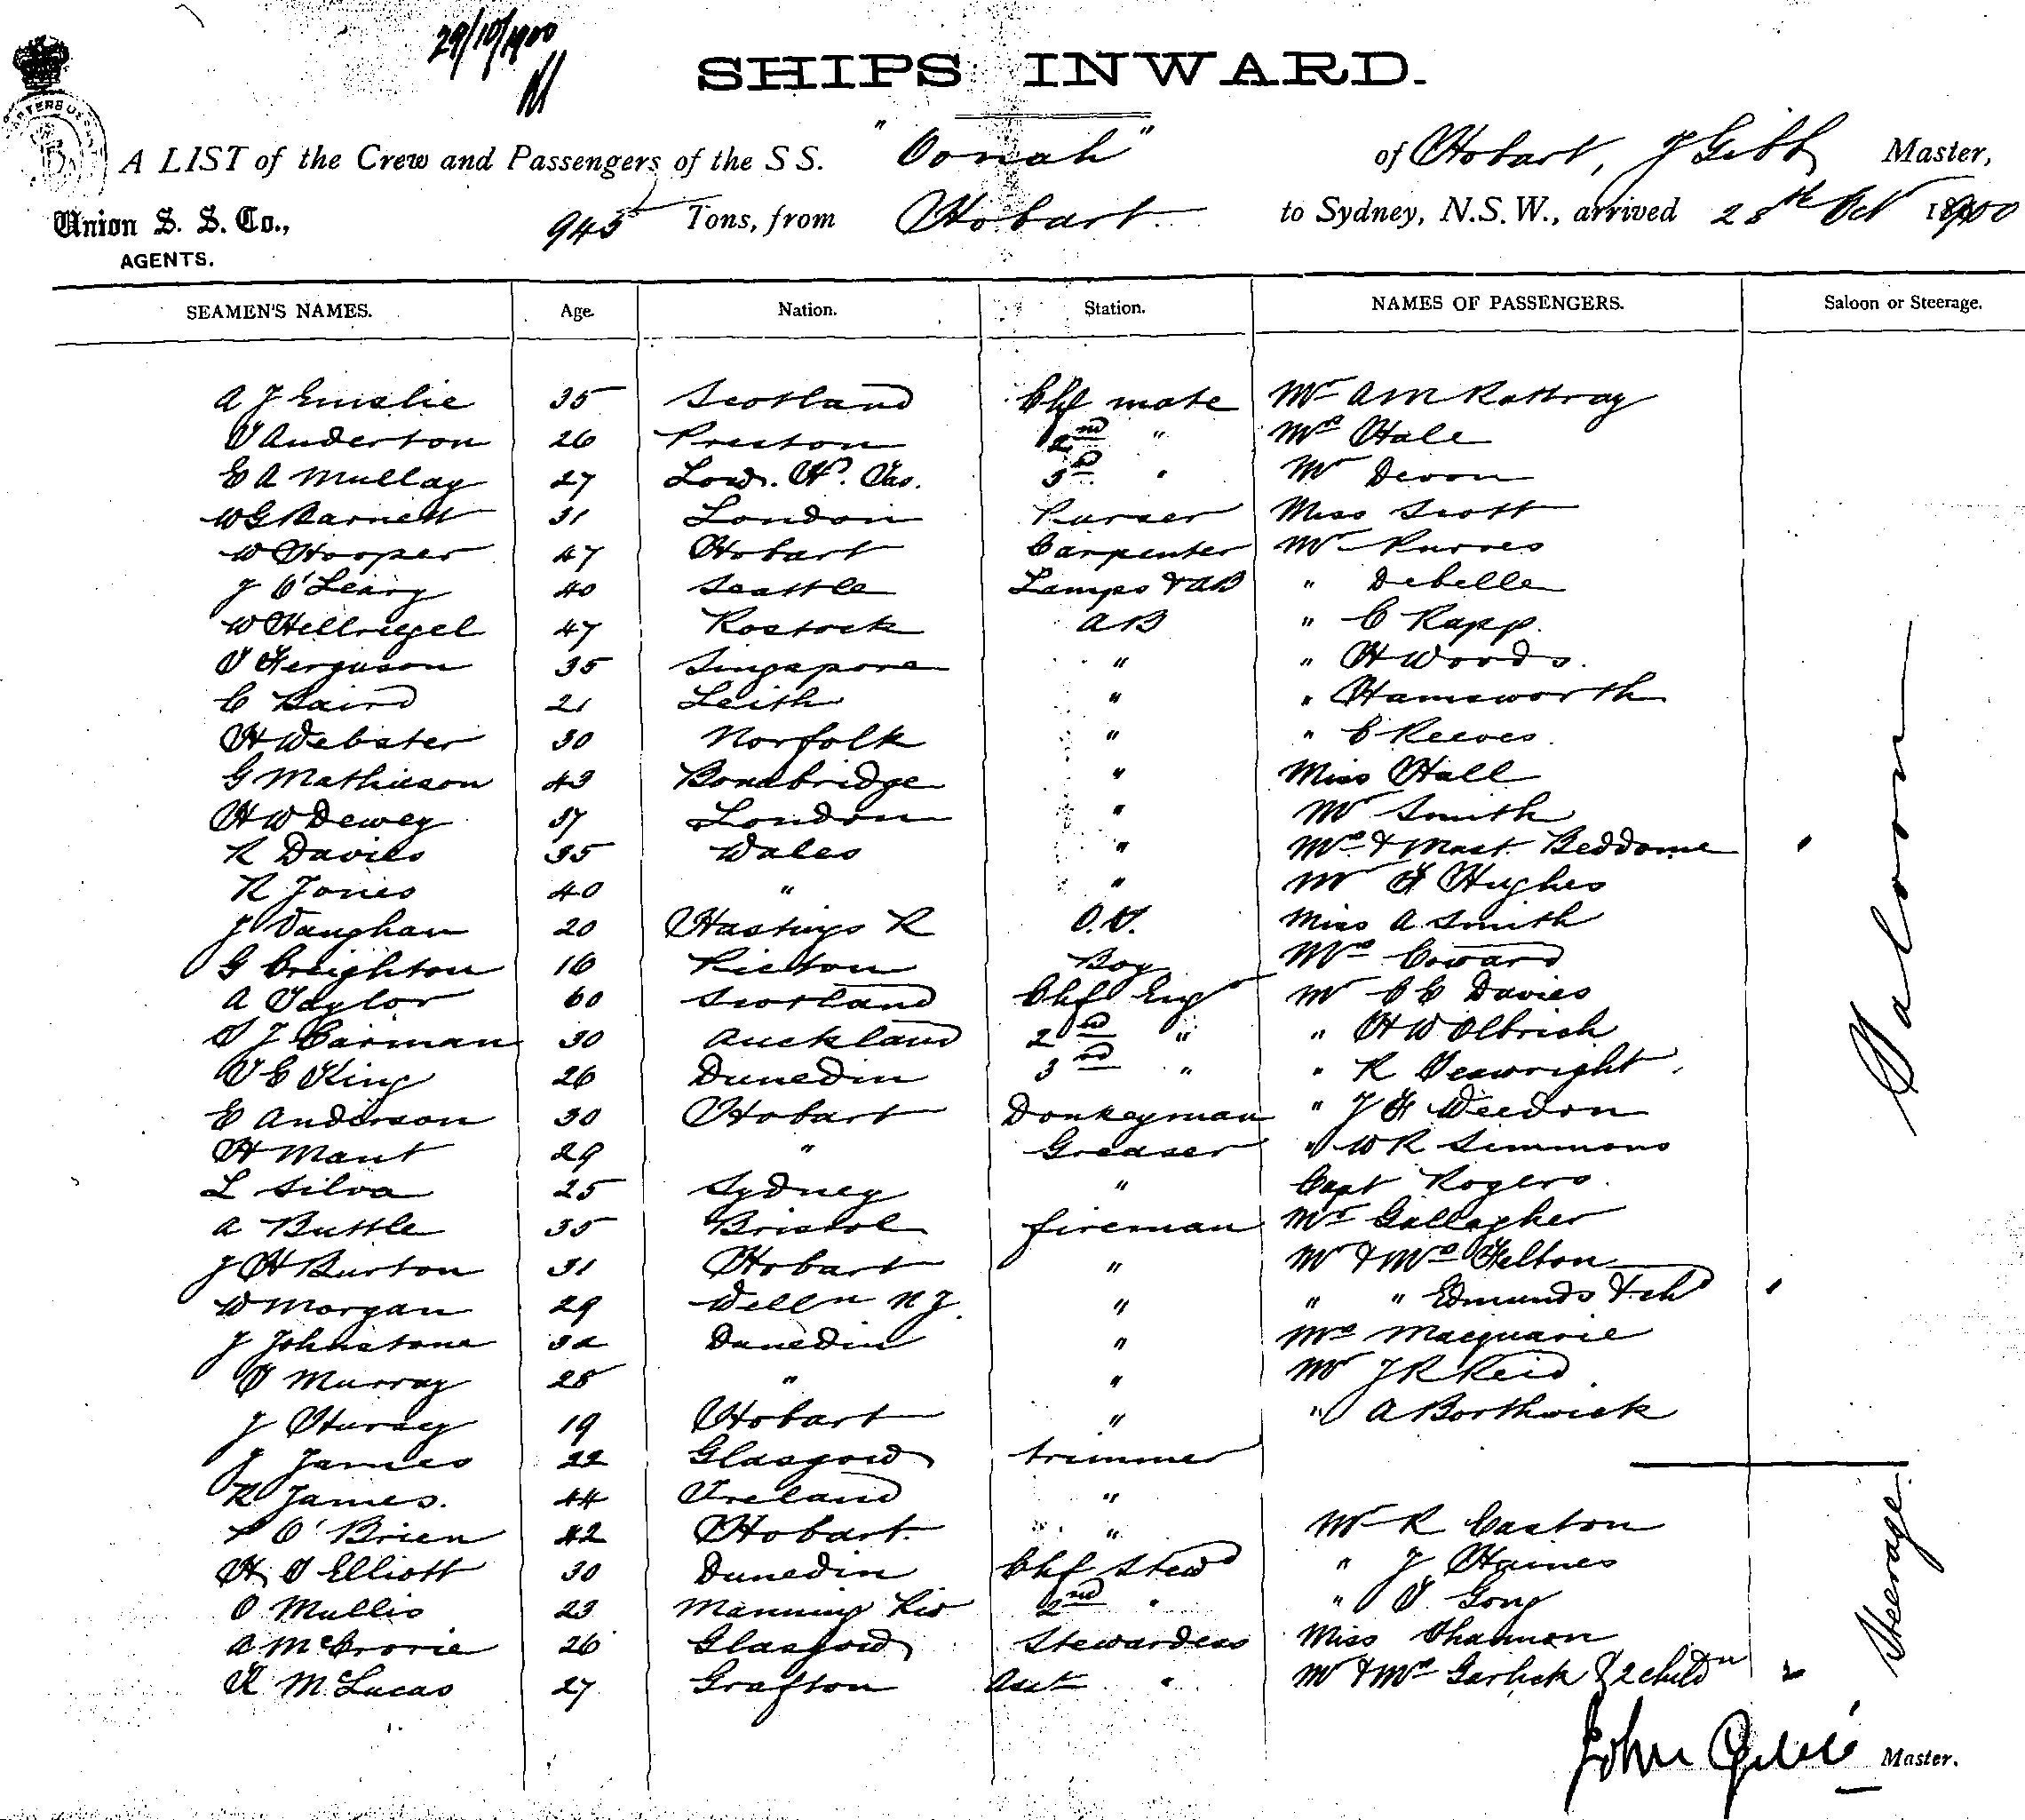 29/10/1900
SHIPS INWARD.
A LIST of the Crew and Passengers of the S S. "Oonah" of Hobart, J Gibb Master,
Union S. S. Co., 945 Tons, from Hobart to Sydney, N.S.W., arrived 28th Oct 1900
AGENTS.
SEAMEN'S NAMES. Age. Nation. Station. NAMES OF PASSENGERS. Saloon or Steerage.
A J Emslie 35 Scotland Chf mate Mr A M Rattray
T Anderton 26 Preston 2nd " Mrs Hale
E A Mullay 27 Low. Hd. Tas. 3rd " Mr Devon
W G Barnett 31 London Purser Miss Scott
W Hooper 47 Hobart Carpenter Mr Purves
J O'Leary 40 Seattle Lamps & AB " Debelle
W Hellriegel 47 Rostock AB " C Rapp.
T Ferguson 35 Singapore " " H Woods.
C Baird 21 Leith " " Hamsworth
H Webster 30 Norfolk " " C Reeves.
G Mathieson 43 Bonabridge " Miss Hall
H W Dewey 37 London " Mr Smith
R Davies 35 Wales " Mrs & Mast. Beddome "
R Jones 40 " " Mr F Hughes
J Vaughan 20 Hastings R O.S. Miss A Smith
G Creighton 16 Picton Boy Mrs Coward
A Taylor 60 Scotland Chf Engr Mr C C Davies
S J Carman 30 Auckland 2nd " " H W Olbrich
T C King 26 Dunedin 3rd " " R Seawright
E Anderson 30 Hobart Donkeyman " J F Weedon
H Mant 29 " Greaser " W R Simmons
L Silva 25 Sydney " Capt Rogers.
A Buttle 35 Bristol fireman Mr Gallagher
J H Burton 31 Hobart " Mr & Mrs Felton
W Morgan 29 Welln N Z. " " " Edmunds & chd "
J Johnstone 32 Dunedin " Mrs Macquarie
T Murray 28 " " Mr J R Reid
J Hursey 19 Hobart " " A Borthwick
Saloon
J James 22 Glasgow trimmer
R James. 44 Ireland "
P O'Brien 42 Hobart. " Mr R Caston
H. S Elliott 30 Dunedin Chf Stewd " J Haines
O Mullis 23 Manning Riv 2nd " " T Gong
A McCrorie 26 Glasgow Stewardess Miss Shannon
McLucas 27 Grafton Asst " Mr & Mrs Garlick & 2 childn "
Steerage.
John Master.